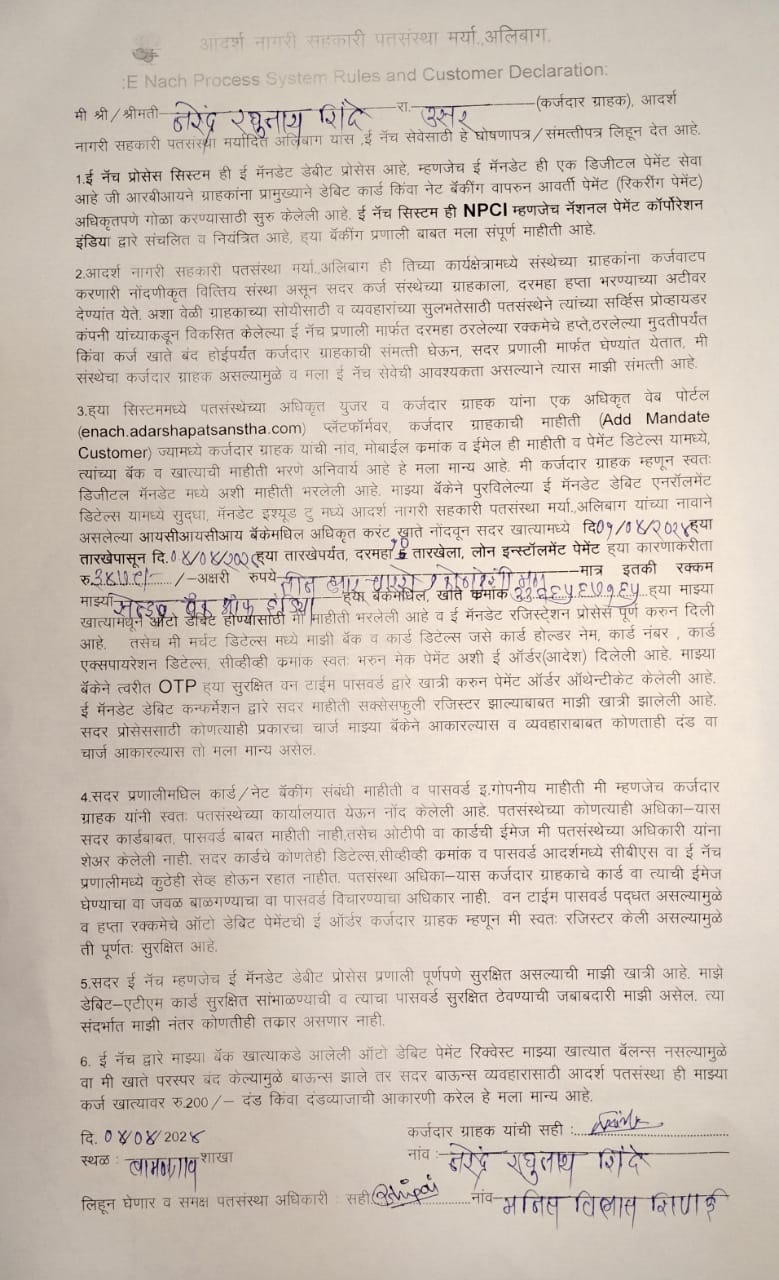 आदर्श नागरी सहकारी पतसंस्था मर्या.,अलिबाग.
:E Nach Process System Rules and Customer Declaration:
मी श्री/श्रीमती नरेंद्र रघुनाथ शिंदे रा. उसर (कर्जदार ग्राहक), आदर्श
नागरी सहकारी पतसंस्था मर्यादित अलिबाग यांस ,ई नॅच सेवेसाठी हे घोषणापत्र/संमत्तीपत्र लिहून देत आहे.
1.ई नॅच प्रोसेस सिस्टम ही ई मॅनडेट डेबीट प्रोसेस आहे, म्हणजेच ई मॅनडेट ही एक डिजीटल पेमेंट सेवा
आहे जी आरबीआयने ग्राहकांना प्रामुख्याने डेबिट कार्ड किंवा नेट बॅकींग वापरुन आवर्ती पेमेंट (रिकरींग पेमेंट)
अधिकृतपणे गोळा करण्यासाठी सुरु केलेली आहे. ई नॅच सिस्टम ही NPCI म्हणजेच नॅशनल पेमेंट कॉर्पोरेशन
इंडिया द्वारे संचलित व नियंत्रित आहे, ह्या बॅकींग प्रणाली बाबत मला संपूर्ण माहीती आहे.
2.आदर्श नागरी सहकारी पतसंस्था मर्या.,अलिबाग ही तिच्या कार्यक्षेत्रामध्ये संस्थेच्या ग्राहकांना कर्जवाटप
करणारी नोंदणीकृत वित्तिय संस्था असून सदर कर्ज संस्थेच्या ग्राहकाला, दरमहा हप्ता भरण्याच्या अटीवर
देण्यांत येते. अशा वेळी ग्राहकाच्या सोयीसाठी व व्यवहारांच्या सुलभतेसाठी पतसंस्थेने त्यांच्या सर्व्हिस प्रोव्हायडर
कंपनी यांच्याकडून विकसित केलेल्या ई नॅच प्रणाली मार्फत दरमहा ठरलेल्या रक्कमेचे हप्ते,ठरलेल्या मुदतीपर्यंत
किंवा कर्ज खाते बंद होईपर्यंत कर्जदार ग्राहकाची संमत्ती घेऊन, सदर प्रणाली मार्फत घेण्यांत येतात, मी
संस्थेचा कर्जदार ग्राहक असल्यामुळे व मला ई नॅच सेवेची आवश्यकता असल्याने त्यास माझी संमत्ती आहे.
3.ह्या सिस्टममध्ये पतसंस्थेच्या अधिकृत युजर व कर्जदार ग्राहक यांना एक अधिकृत वेब पोर्टल
(enach.adarshapatsanstha.com) प्लॅटफॉर्मवर, कर्जदार ग्राहकाची माहीती (Add Mandate
Customer) ज्यामध्ये कर्जदार ग्राहक यांची नांव, मोबाईल क्रमांक व ईमेल ही माहीती व पेमेंट डिटेल्स यामध्ये,
त्यांच्या बॅक व खात्याची माहीती भरणे अनिवार्य आहे हे मला मान्य आहे. मी कर्जदार ग्राहक म्हणून स्वतः
डिजीटल मॅनडेट मध्ये अशी माहीती भरलेली आहे. माझ्या बॅकेने पुरविलेल्या ई मॅनडेट डेबिट एनरॉलमेंट
डिटेल्स यामध्ये सुद्धा, मॅनडेट इश्यूड टु मध्ये आदर्श नागरी सहकारी पतसंस्था मर्या.,अलिबाग यांच्या नावाने
असलेल्या आयसीआयसीआय बॅकेमधिल अधिकृत करंट खाते नोंदवून सदर खात्यामध्ये दि ०५/०४/२०२४ ह्या
तारखेपासून दि. ह्या तारखेपर्यंत, दरमहा १० तारखेला, लोन इन्स्टॉलमेंट पेमेंट ह्या कारणाकरीता
रु. /-अक्षरी रुपये तीन हजार चारशे मात्र इतकी रक्कम
माझ्या सेन्ट्रल बँक ऑफ इंडिया ह्या बॅकेमधिल, खाते क्रमांक ह्या माझ्या
खात्यामधून ऑटो डेबिट होण्यासाठी मी माहीती भरलेली आहे व ई मॅनडेट रजिस्ट्रेशन प्रोसेस पूर्ण करुन दिली
आहे. तसेच मी मर्चंट डिटेल्स मध्ये माझी बॅक व कार्ड डिटेल्स जसे कार्ड होल्डर नेम, कार्ड नंबर , कार्ड
एक्सपायरेशन डिटेल्स, सीव्हीव्ही क्रमांक स्वतः भरुन मेक पेमेंट अशी ई ऑर्डर(आदेश) दिलेली आहे. माझ्या
बॅकेने त्वरीत OTP ह्या सुरक्षित वन टाईम पासवर्ड द्वारे खात्री करुन पेमेंट ऑर्डर ऑथेन्टीकेट केलेली आहे.
ई मॅनडेट डेबिट कन्फर्मेशन द्वारे सदर माहीती सक्सेसफुली रजिस्टर झाल्याबाबत माझी खात्री झालेली आहे.
सदर प्रोसेससाठी कोणत्याही प्रकारचा चार्ज माझ्या बॅकेने आकारल्यास व व्यवहाराबाबत कोणताही दंड वा
चार्ज आकारल्यास तो मला मान्य असेल.
4.सदर प्रणालीमधिल कार्ड/नेट बॅकींग संबंधी माहीती व पासवर्ड इ.गोपनीय माहीती मी म्हणजेच कर्जदार
ग्राहक यांनी स्वतः पतसंस्थेच्या कार्यालयात येऊन नोंद केलेली आहे. पतसंस्थेच्या कोणत्याही अधिका-यास
सदर कार्डबाबत, पासवार्ड बाबत माहीती नाही,तसेच ओटीपी वा कार्डची ईमेज मी पतसंस्थेच्या अधिकारी यांना
शेअर केलेली नाही. सदर कार्डचे कोणतेही डिटेल्स,सीव्हीव्ही क्रमांक व पासवार्ड आदर्शमध्ये सीबीएस वा ई नॅच
प्रणालीमध्ये कुठेही सेव्ह होऊन रहात नाहीत. पतसंस्था अधिका-यास कर्जदार ग्राहकाचे कार्ड वा त्याची ईमेज
घेण्याचा वा जवळ बाळगण्याचा वा पासवार्ड विचारण्याचा अधिकार नाही. वन टाईम पासवर्ड पद्धत असल्यामुळे
व हप्ता रक्कमेचे ऑटो डेबिट पेमेंटची ई ऑर्डर कर्जदार ग्राहक म्हणून मी स्वतः रजिस्टर केली असल्यामुळे
ती पूर्णतः सुरक्षित आहे.
5.सदर ई नॅच म्हणजेच ई मॅनडेट डेबीट प्रोसेस प्रणाली पूर्णपणे सुरक्षित असल्याची माझी खात्री आहे. माझे
डेबिट-एटीएम कार्ड सुरक्षित सांभाळण्याची व त्याचा पासवर्ड सुरक्षित ठेवण्याची जबाबदारी माझी असेल. त्या
संदर्भात माझी नंतर कोणतीही तक्रार असणार नाही.
6. ई नॅच द्वारे माझ्या बॅक खात्याकडे आलेली ऑटो डेबिट पेमेंट रिक्वेस्ट माझ्या खात्यात बॅलन्स नसल्यामुळे
वा मी खाते परस्पर बंद केल्यामुळे बाऊन्स झाले तर सदर बाऊन्स व्यवहारासाठी आदर्श पतसंस्था ही माझ्या
कर्ज खात्यावर रु.200/- दंड किंवा दंडव्याजाची आकारणी करेल हे मला मान्य आहे.
दि. ०४/०४/202४ कर्जदार ग्राहक यांची सही :
स्थळ : बामणगाव शाखा नांव : नरेंद्र रघुनाथ शिंदे
लिहून घेणार व समक्ष पतसंस्था अधिकारी : सही नांव